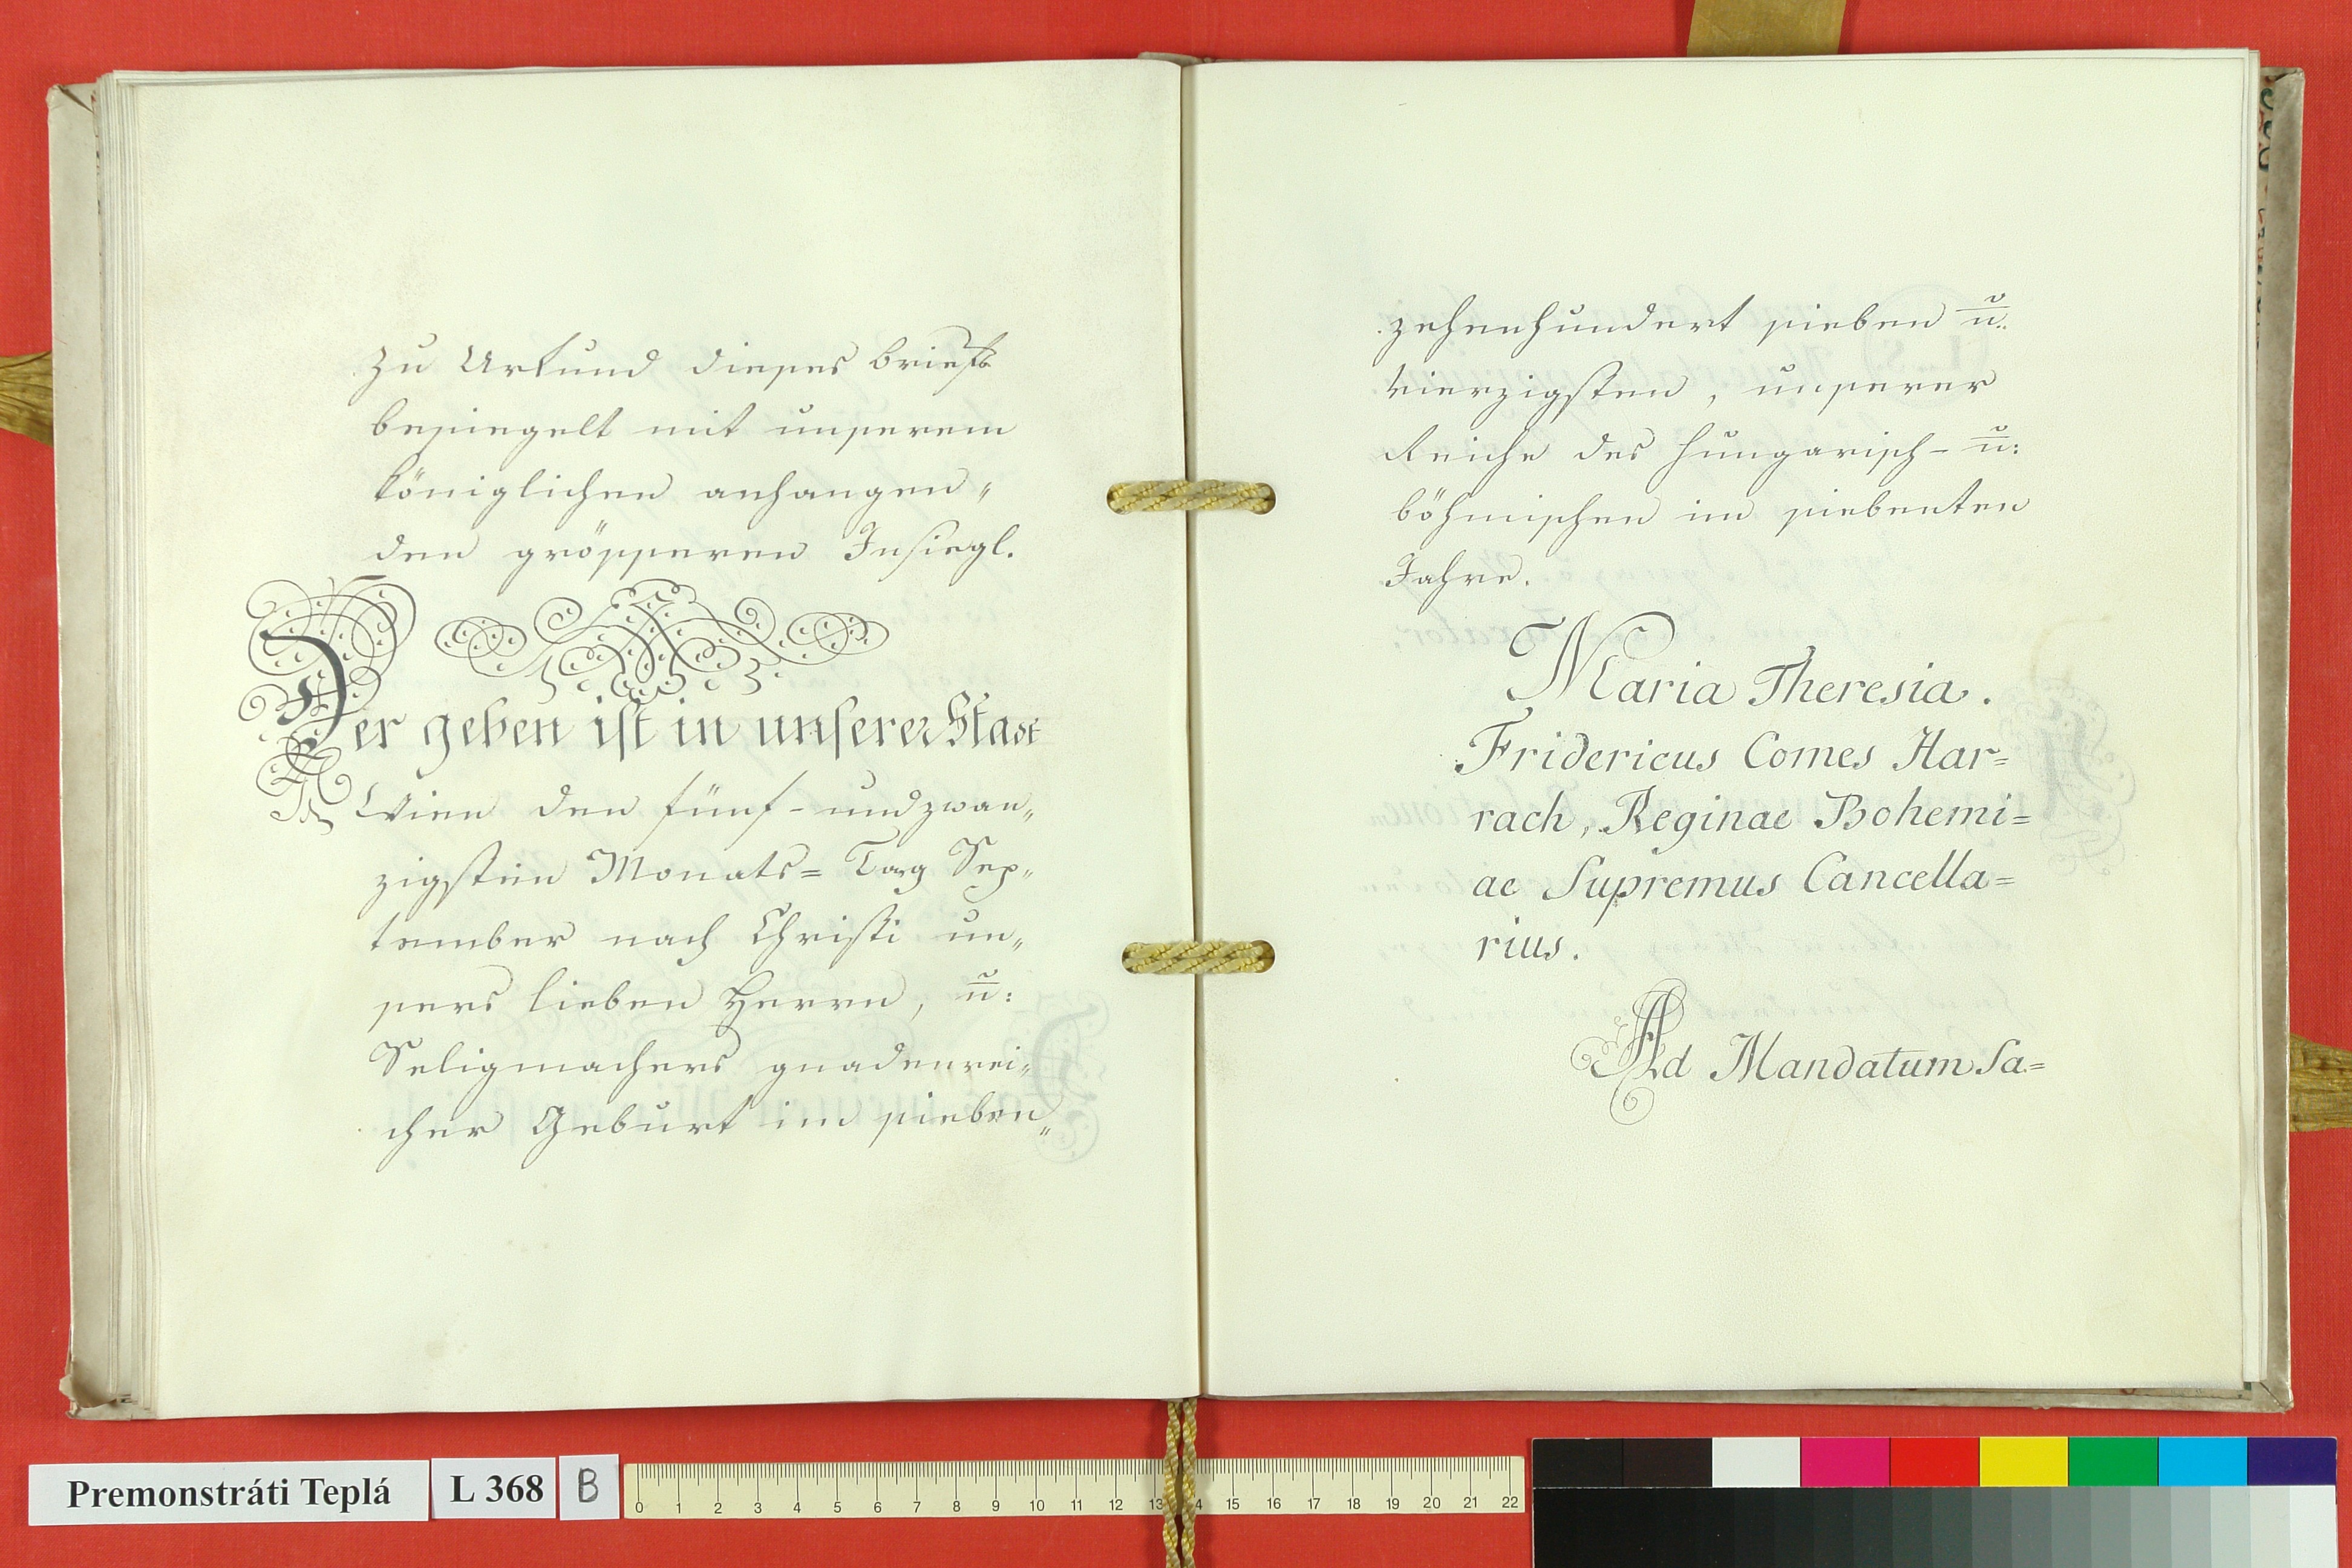 Zu Urkund dieses briefs
besiegelt mit unserem
königlichen anhangen„
den grösseren Insiegl.
Der geben ist in unserer Stadt
Wien den fünf- und zwan„
zigsten Monats= Tag Sep„
tember nach Christi un„
sers lieben Herrn, u:
Seligmachers gnadenrei„
cher Geburt im sieben„
zehenhundert sieben u.
vierzigsten, unserer
Reiche des hungarisch- u:
böhmischen im siebenten
Jahre.
Maria Theresia.
Fridericus Comes Har=
rach, Reginae Bohemi=
ae Supremus Cancella=
rius.
Ad Mandatum Sa=
Premonstráti Teplá L 368 B
0 1 2 3 4 5 6 7 8 9 10 11 12 13 4 15 16 17 18 19 20 21 22